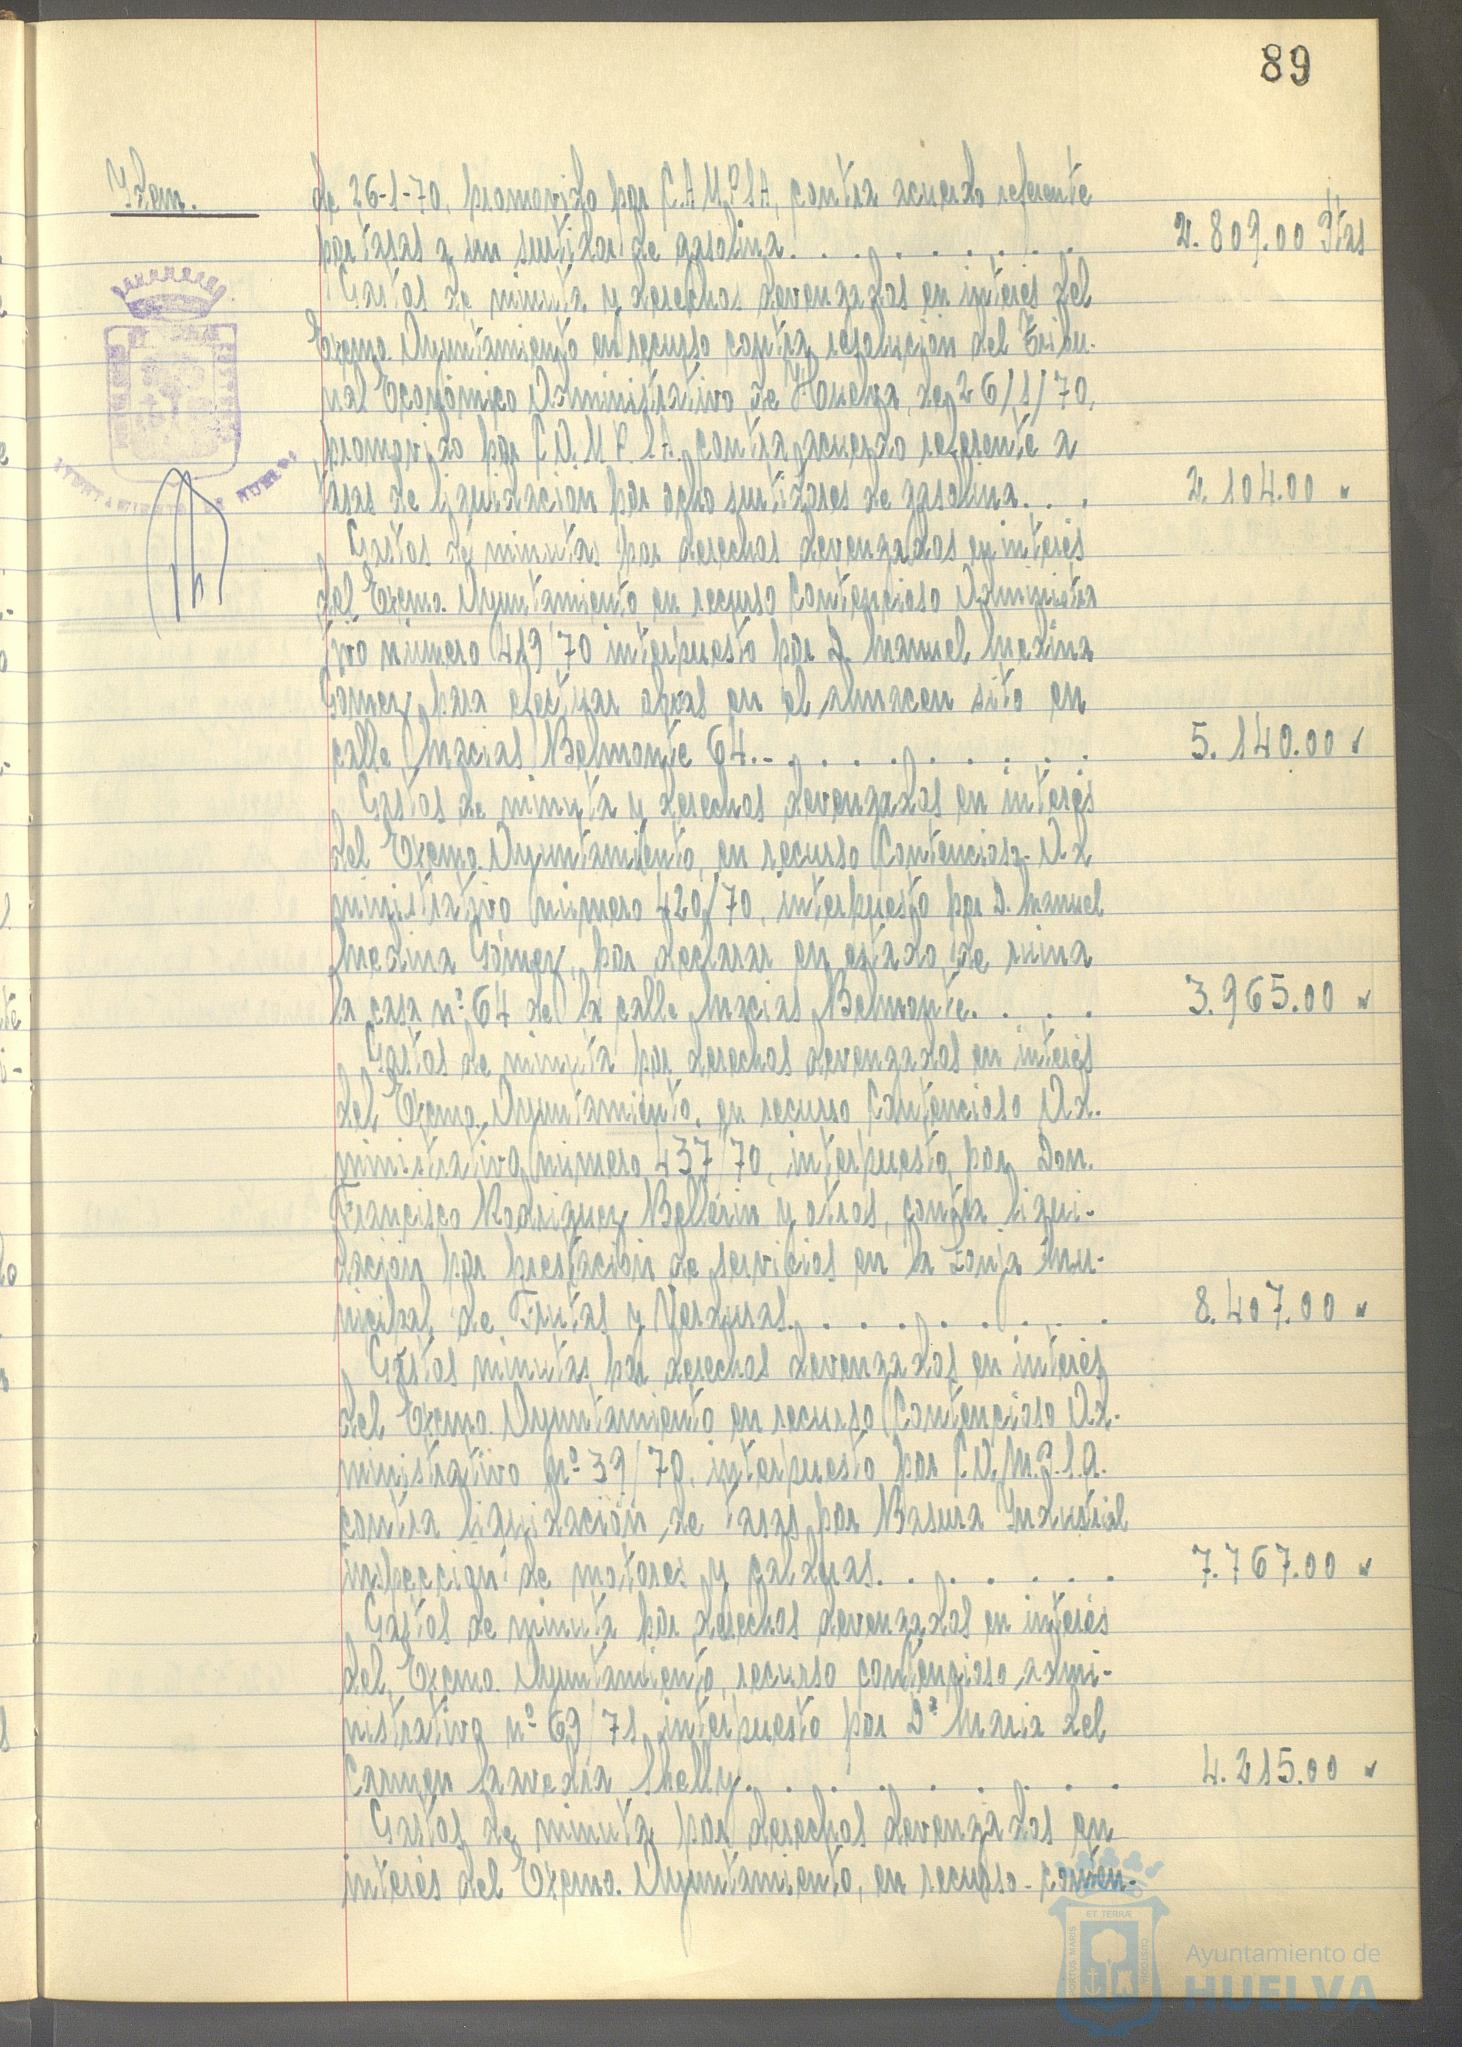 89
Idem.
de 26-1-70, promovido por C.A.M.P.S.A, contra acuerdo referente
por tasas a un surtidor de gasolina. . . . . . . . . 2.809.00 Ptas
Gastos de minuta y derechos devengados en interés del
Excmo. Ayuntamiento en recurso contra resolución del Tribu-
nal Económico Administrativo de Huelva, de 26/1/70,
promovido por C.A.M.P.S.A. contra acuerdo referente a
tasas de liquidación por ocho surtidores de gasolina. . . 2.104.00 "
Gastos de minutas por derechos devengados en interés
del Excmo. Ayuntamiento en recurso Contencioso Administra
tivo número 419/70 interpuesto por D. Manuel Medina
Gómez para efectuar obras en el almacen sito en
calle Macias Belmonte 64.- . . . . . . . . 5.140.00 "
Gastos de minuta y derechos devengados en interés
del Excmo. Ayuntamiento, en recurso Contencioso- Ad
ministrativo número 420/70, interpuesto por D. Manuel
Medina Gómez, por declarar en estado de ruina
la casa nº 64 de la calle Macias Belmonte. . . . 3.965.00 "
Gastos de minuta por derechos devengados en interés
del Excmo. Ayuntamiento, en recurso Contencioso Ad.
ministrativo número 437/70, interpuesto por Don.
Francisco Rodriguez Bellerin y otros, contra liqui-
dación por prestación de servicios en la Lonja Mu-
nicipal de Frutas y Verduras. . . . . . . . . 8.407.00 "
Gastos minutas por derechos devengados en interés
del Excmo. Ayuntamiento en recurso Contencioso Ad.
ministrativo nº 39/70, interpuesto por C.A.M.P.S.A.
contra liquidación de tasas por Basura Industrial
inspección de motores y calderas. . . . . . . 7.767.00 "
Gastos de minuta por derechos devengados en interés
del Excmo. Ayuntamiento, recurso contencioso admi-
nistrativo nº 69/71 interpuesto por Dª Maria del
Carmen Saavedra Shelly. . . . . . . . . 4.215.00 "
Gastos de minuta por derechos devengados en
interés del Excmo. Ayuntamiento, en recurso- conten-
ET TERRÆ
PORTUS MARIS
CUSTODIA
Ayuntamiento de
HUELVA